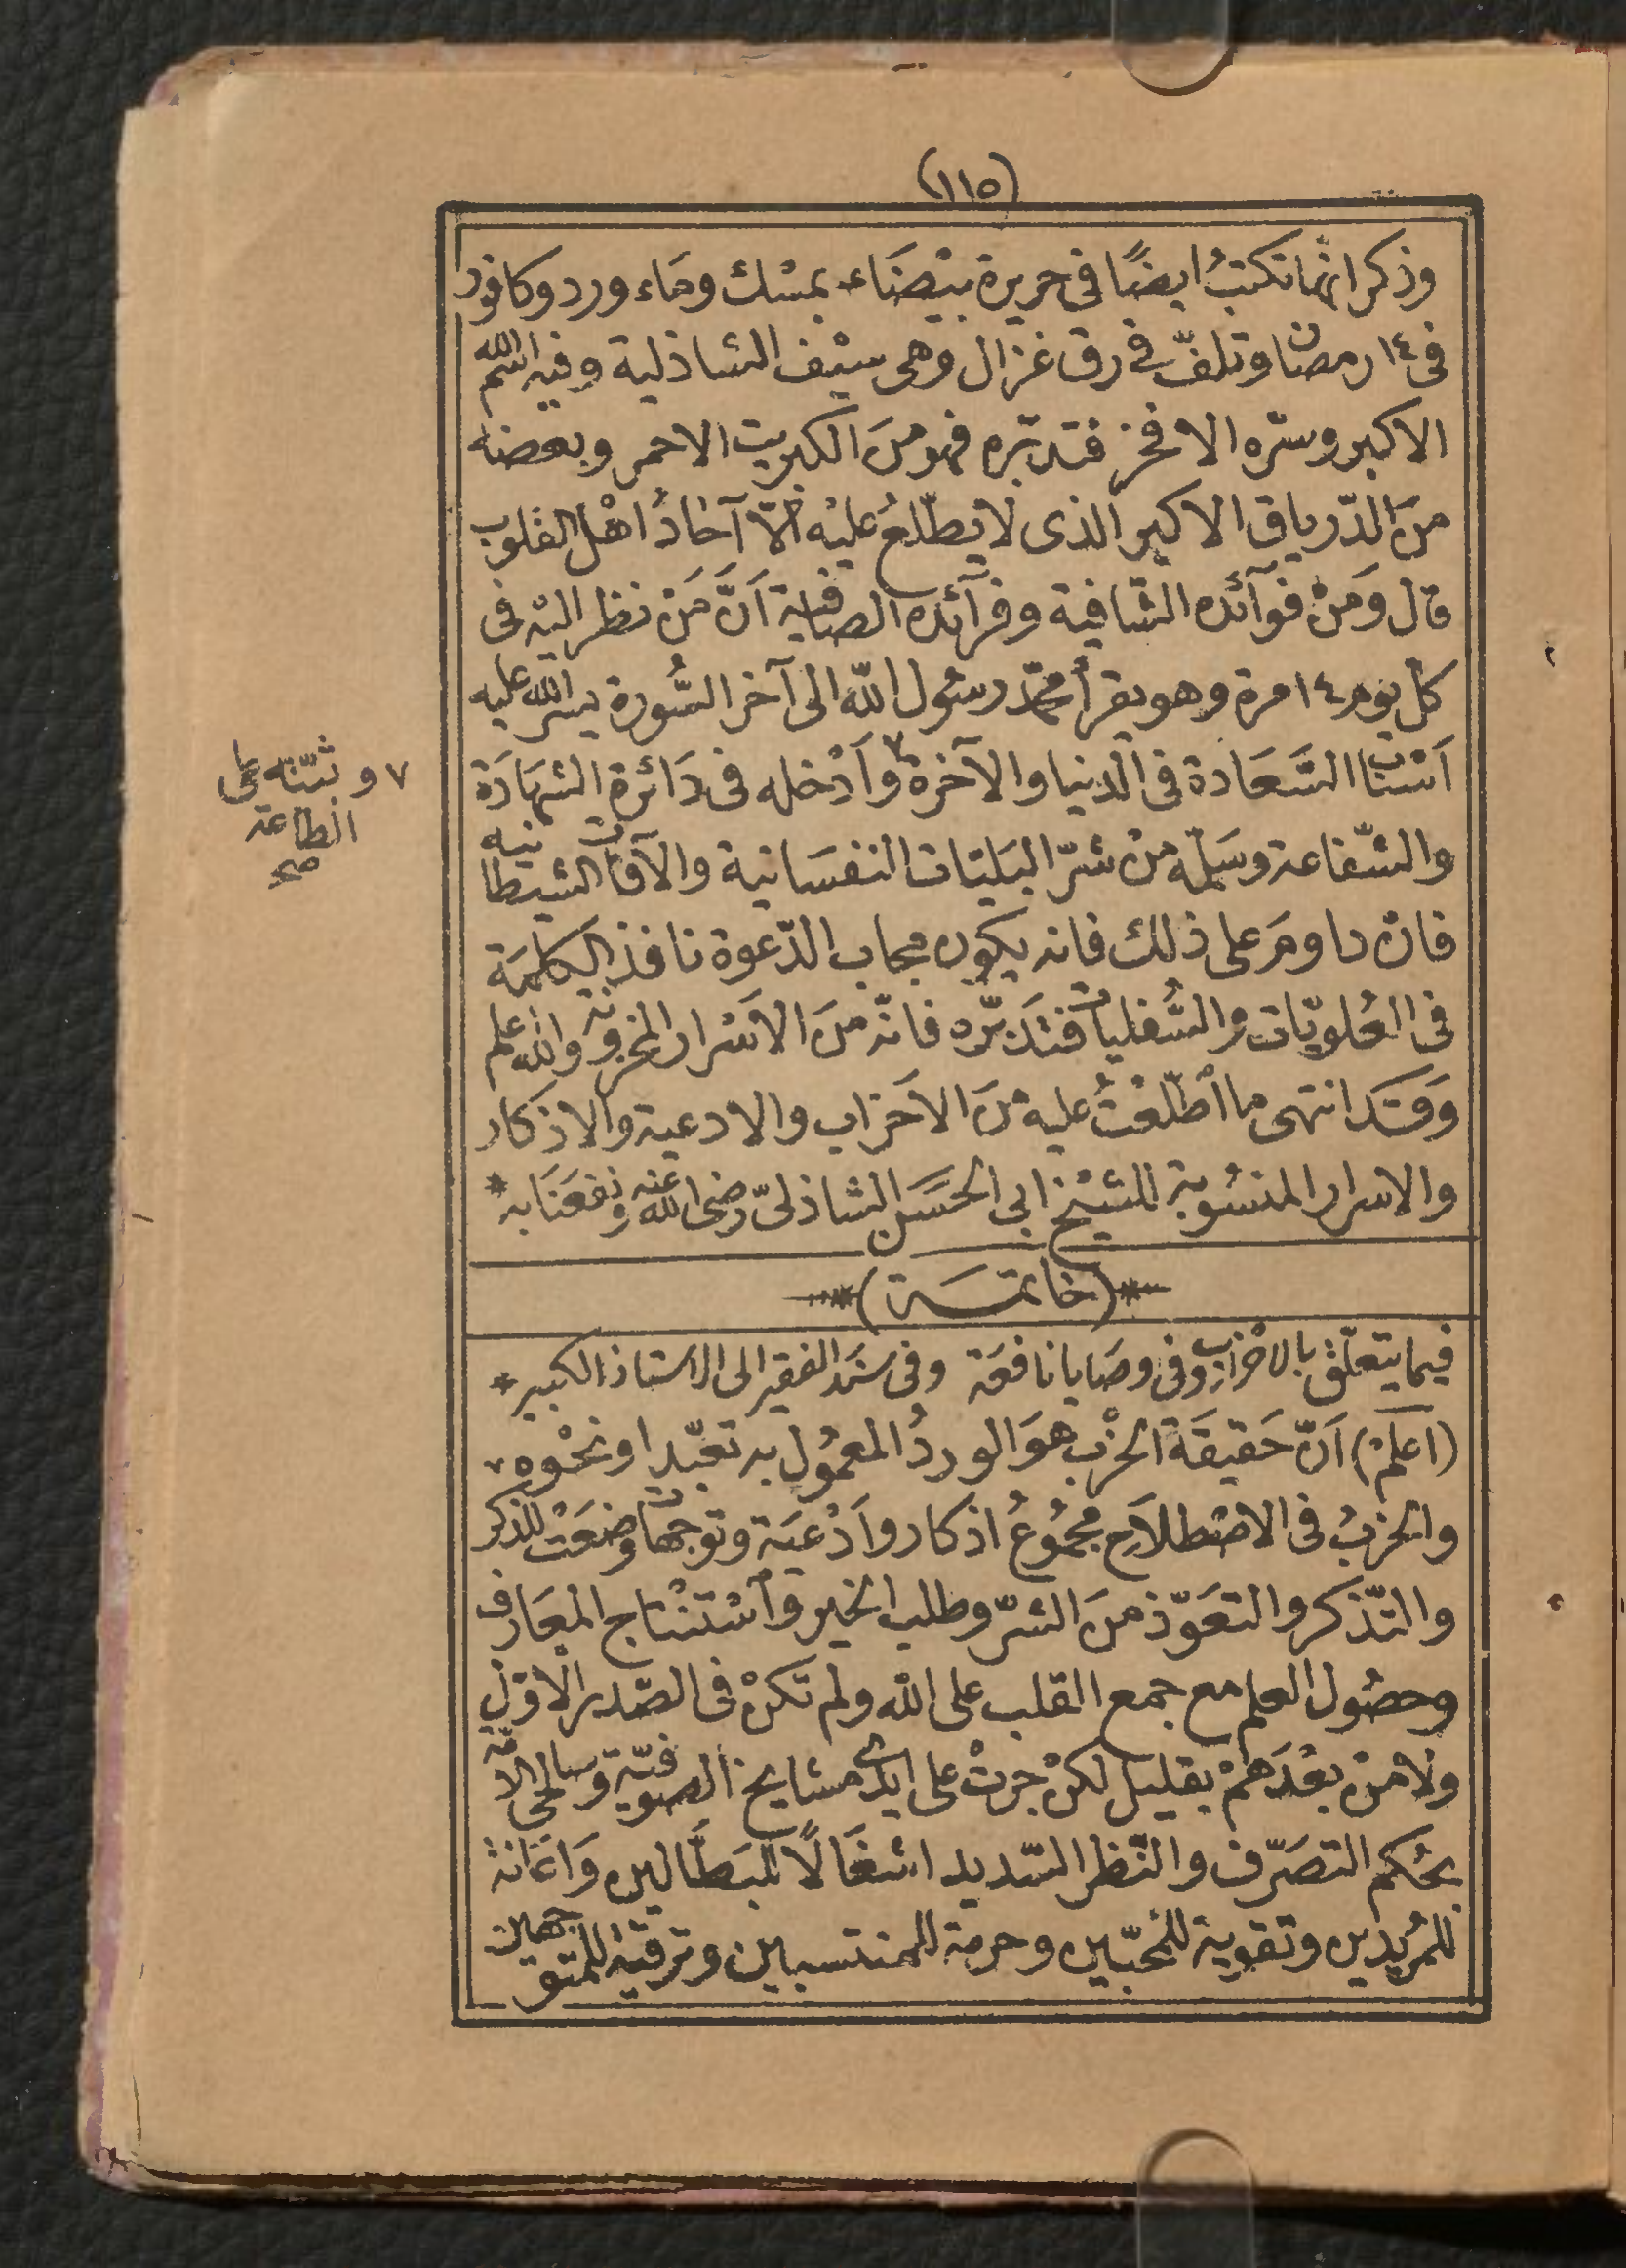 (١١٥)
وذكر انها تكتبُ ايضًا فى حريرة بيْضَاء بمسْك ومَاء ورد وكافور
فى ١٤ رمضان وتلفّ فى رق غزال وهى سيْف الشاذلية وفيه اسم الله
الاكبر وسرّه الافخر فتدبّره فهو منَ الكبريت الاحمر وبعضه
منَ الدّرياق الاكبر الذى لا يطّلعُ عليْه الّا آحادُ اهْل القلوب
قال وَمنْ فوآئده الشّافية وفرآئده الصافية اَنَّ مَنْ نظر اليْه فى
كل يوم ١٤ مرة وهو يقرأ محمّد رسُول اللّه الى آخر السُّورة يسر الله عليه
اَسْباب السَّعَادة فى الدنيا والآخرة ٧ واَدْخله فى دَائرة الشهَادَة
٧ وثبّته على
الطاعة
صح
والشّفاعة وسَلّمه منْ شرّ البَليّات النفسَانية والآفات الشيطانيه
فانْ داومَ على ذلك فانه يكون مجاب الدّعوة نافذ الكلمَة
فى العُلويّات والسُّفليات فتَدبّره فانّه منَ الاَسْرار المخزونة والله اعلم
وَقَد انتهى ما اطّلعْتُ عليه منَ الاَحزاب والادعية والاذكار
والاسرار المنسُوبة للشيْخ ابى الحسَن الشاذلىّ رضى الله عنه ونفعَنَا به *
*(خاتمَة)*
فيما يتعلّق بالاحْزاب وفى وصَايا نافعَة وفى سنَد الفقير الى الاستاذ الكبير *
(اعلَمْ) اَنّ حَقيقَة الحزْب هوَ الوردُ المعمُول به تعبّدا ونحْوه
والحزبُ فى الاصْطلاَح مجمُوعُ اذكار واَدْعيَة وتوجهات وضعَتْ للذكر
والتّذكر والتعَوّذ منَ الشرّ وطلب الخير واسْتنْتاج المعَارف
وحصُول العلم مع جمع القلب على اللّه ولم تكنْ فى الصّدر الاوّل
ولا منْ بعْدَهمْ بقليل لكنْ جرتْ على ايدى مشايخ الصوفيّة وصالحى الامّة
بحُكم التصَرّف والنّظر السّديد اشغَالًا للبَطَّالين وَاعَانة
للمُريدين وتقوية للمُحبّين وحرمة للمنتسبين وترقية للمتوجهين